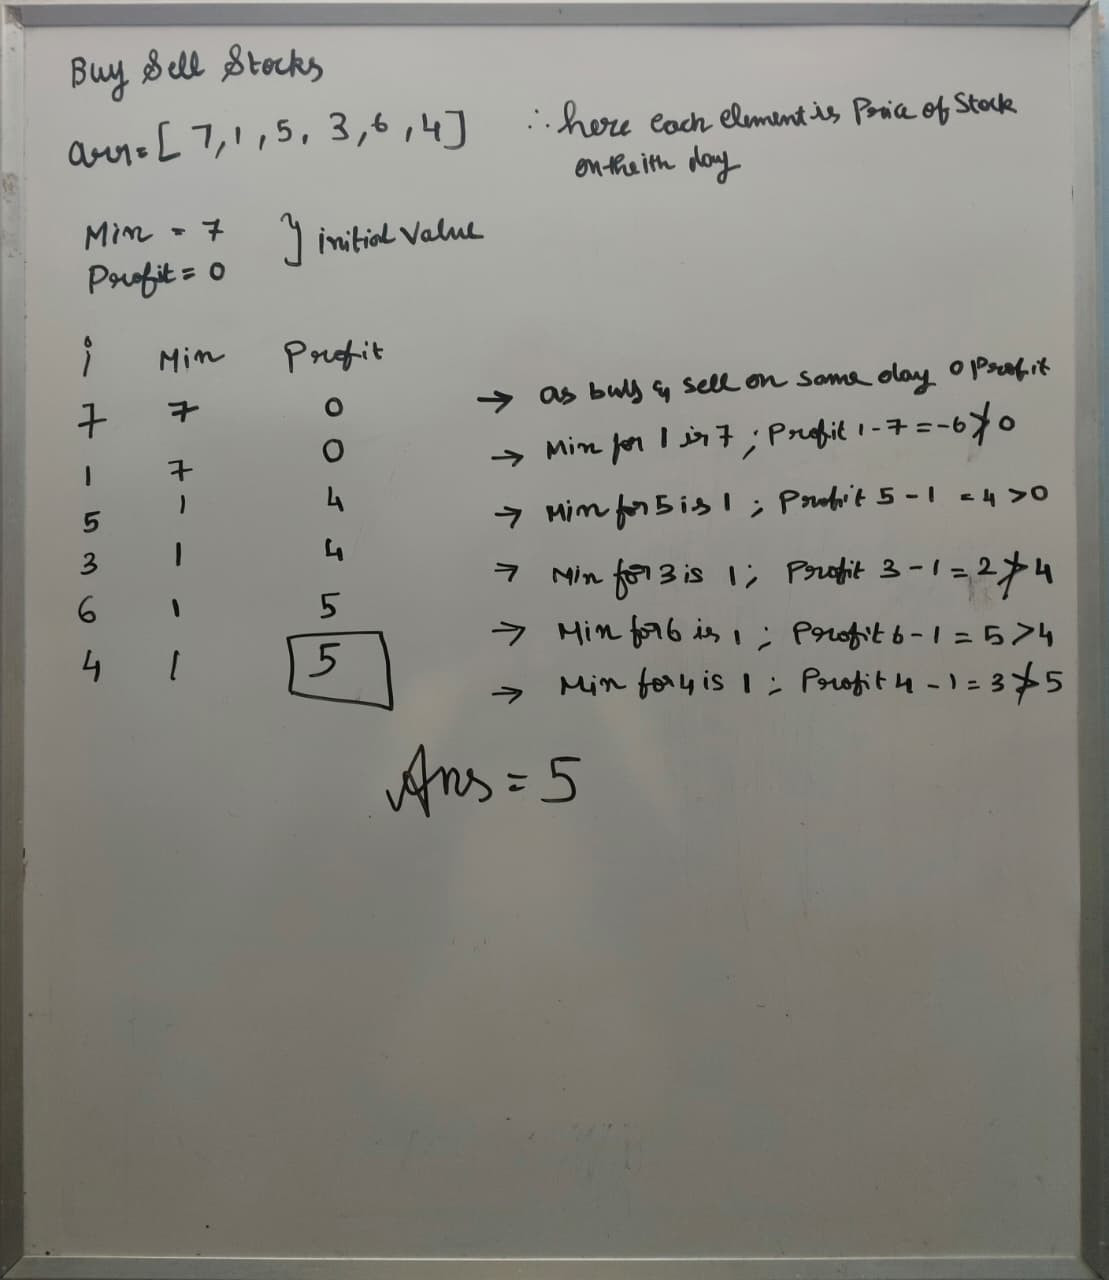 Buy Sell Stocks
arr=[7,1,5,3,6,4] ∴ here each element is Price of Stock
on the ith day
Min = 7 } initial value
Profit = 0
i Min Profit
7 7 0 → as buy & sell on same day 0 Profit
1 7 0 → Min for 1 is 7 ; Profit 1-7 = -6 ≯ 0
5 1 4 → Min for 5 is 1 ; Profit 5-1 = 4 > 0
3 1 4 → Min for 3 is 1 ; Profit 3-1 = 2 ≯ 4
6 1 5 → Min for 6 is 1 ; Profit 6-1 = 5 > 4
4 1 5 → Min for 4 is 1 ; Profit 4-1 = 3 ≯ 5
Ans = 5